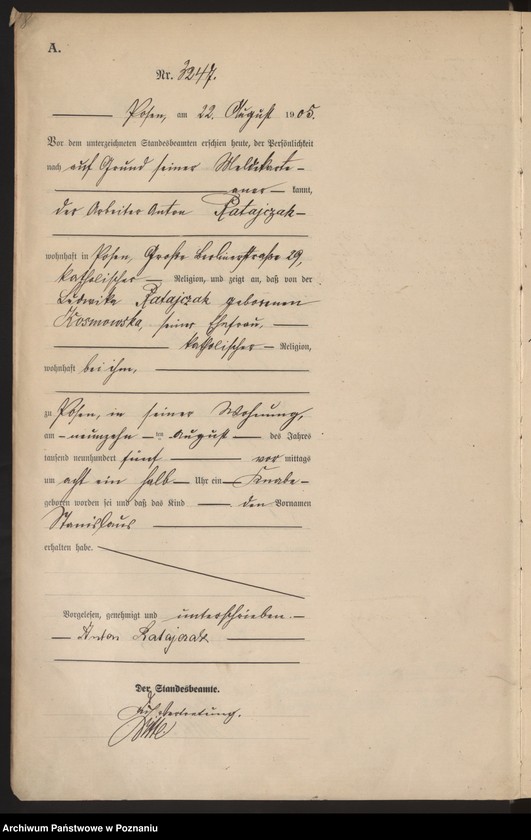 A.
Nr. 3247.
Posen, am 22. August 1905.
Vor dem unterzeichneten Standesbeamten erschien heute, der Persönlichkeit
nach auf Grund seiner Meldekarte
aner kannt,
der Arbeiter Anton Ratajczak
wohnhaft in Posen, Große Berlinerstraße 29,
katholischer Religion, und zeigt an, daß von der
Ludwika Ratajczak geborenen
Kosmowska, seiner Ehefrau,
katholischer Religion,
wohnhaft bei ihm,
zu Posen, in seiner Wohnung,
am neunzehn ten August des Jahres
tausend neunhundert fünf vor mittags
um acht ein halb Uhr ein Knabe
geboren worden sei und daß das Kind den Vornamen
Stanislaus
erhalten habe.
Vorgelesen, genehmigt und unterschrieben.
Anton Ratajczak
Der Standesbeamte.
In Vertretung.
Archiwum Państwowe w Poznaniu